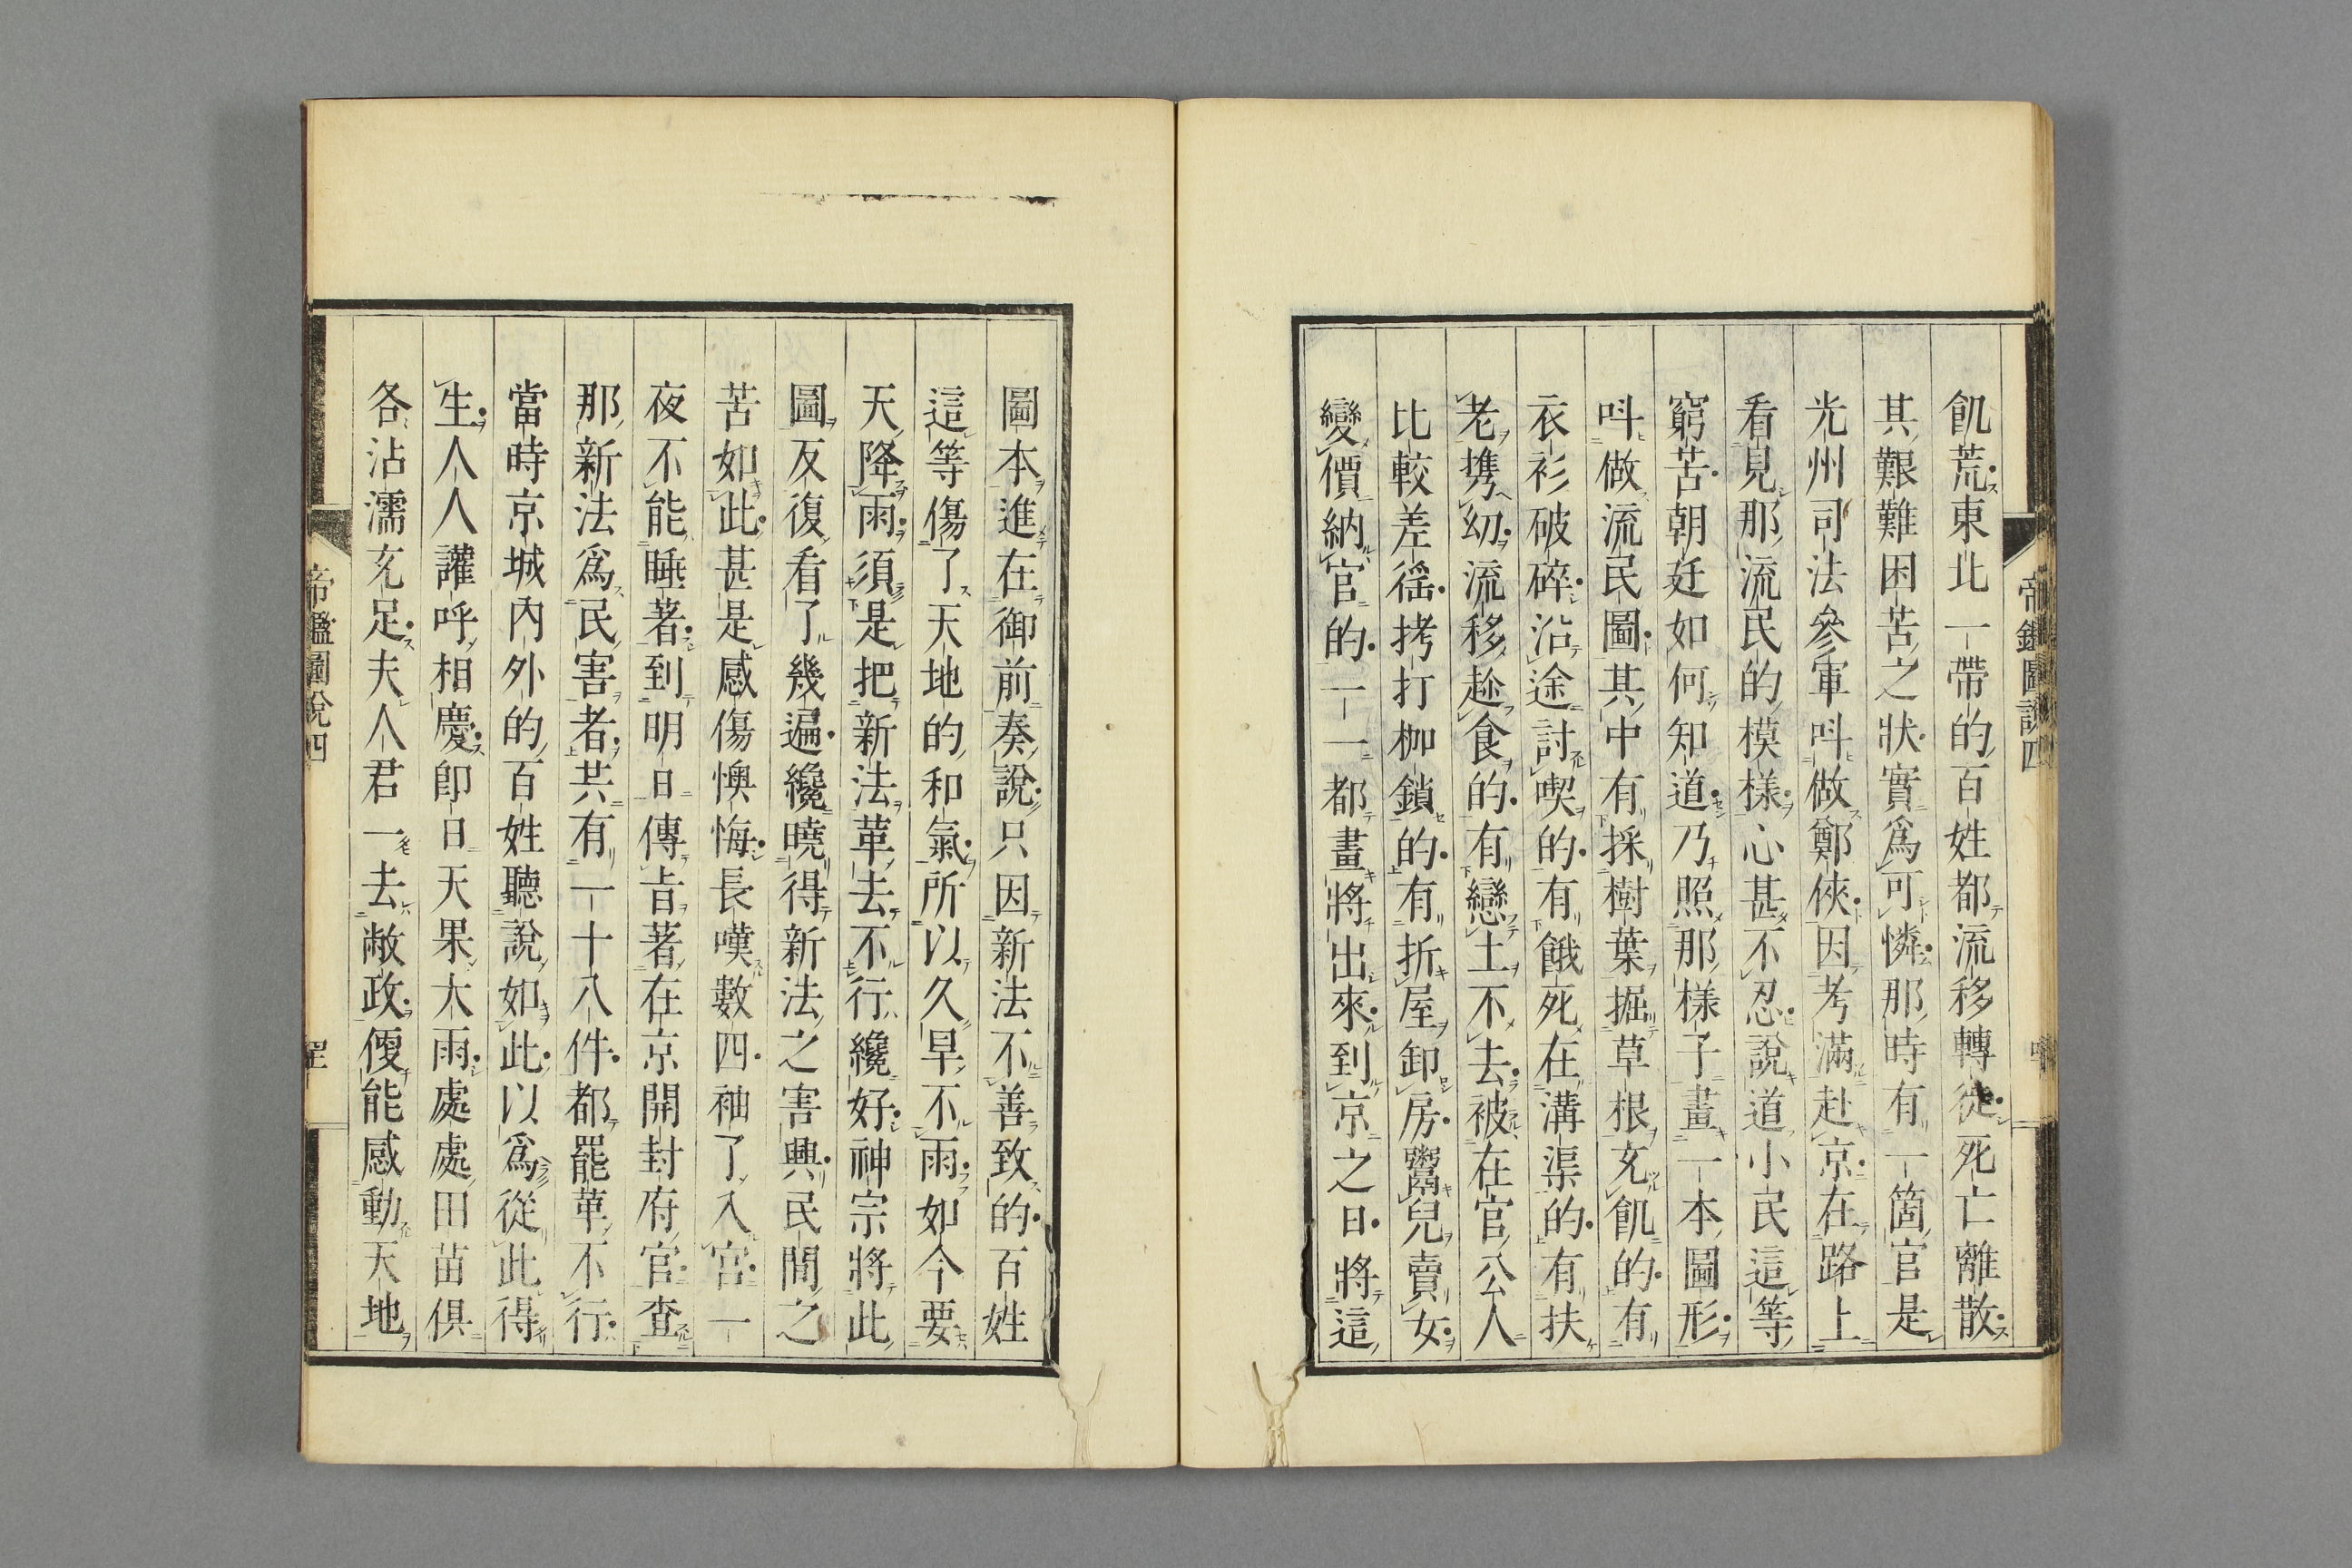 飢荒東北一帶的百姓都流移轉徙死亡離散
其艱難困苦之狀實爲可憐那時有一箇官是
光州司法參軍呌做鄭俠因考滿赴京在路上
看見那流民的模樣心甚不忍說道小民這等
窮苦朝廷如何知道乃照那樣子畫一本圖形
呌做流民圖其中有採樹葉掘草根充飢的有
衣衫破碎沿途討喫的有餓死在溝渠的有扶
老携幼流移趁食的有戀土不去被在官公人
比較差徭拷打枷鎖的有折屋卸房鬻兒賣女
變價納官的一一都畫將出來到京之日將這
圖本進在御前奏說只因新法不善致的百姓
這等傷了天地的和氣所以久旱不雨如今要
天降雨須是把新法革去不行纔好神宗將此
圖反復看了幾遍纔曉得新法之害與民間之
苦如此甚是感傷懊悔長嘆數四袖了入宮一
夜不能睡著到明日傳旨著在京開封府官查
那新法爲民害者共有一十八件都罷革不行
當時京城內外的百姓聽說如此以爲從此得
生人人讙呼相慶卽日天果大雨處處田苗俱
各沾濡充足夫人君一去敝政便能感動天地
帝鑑圖說四
帝鑑圖說四